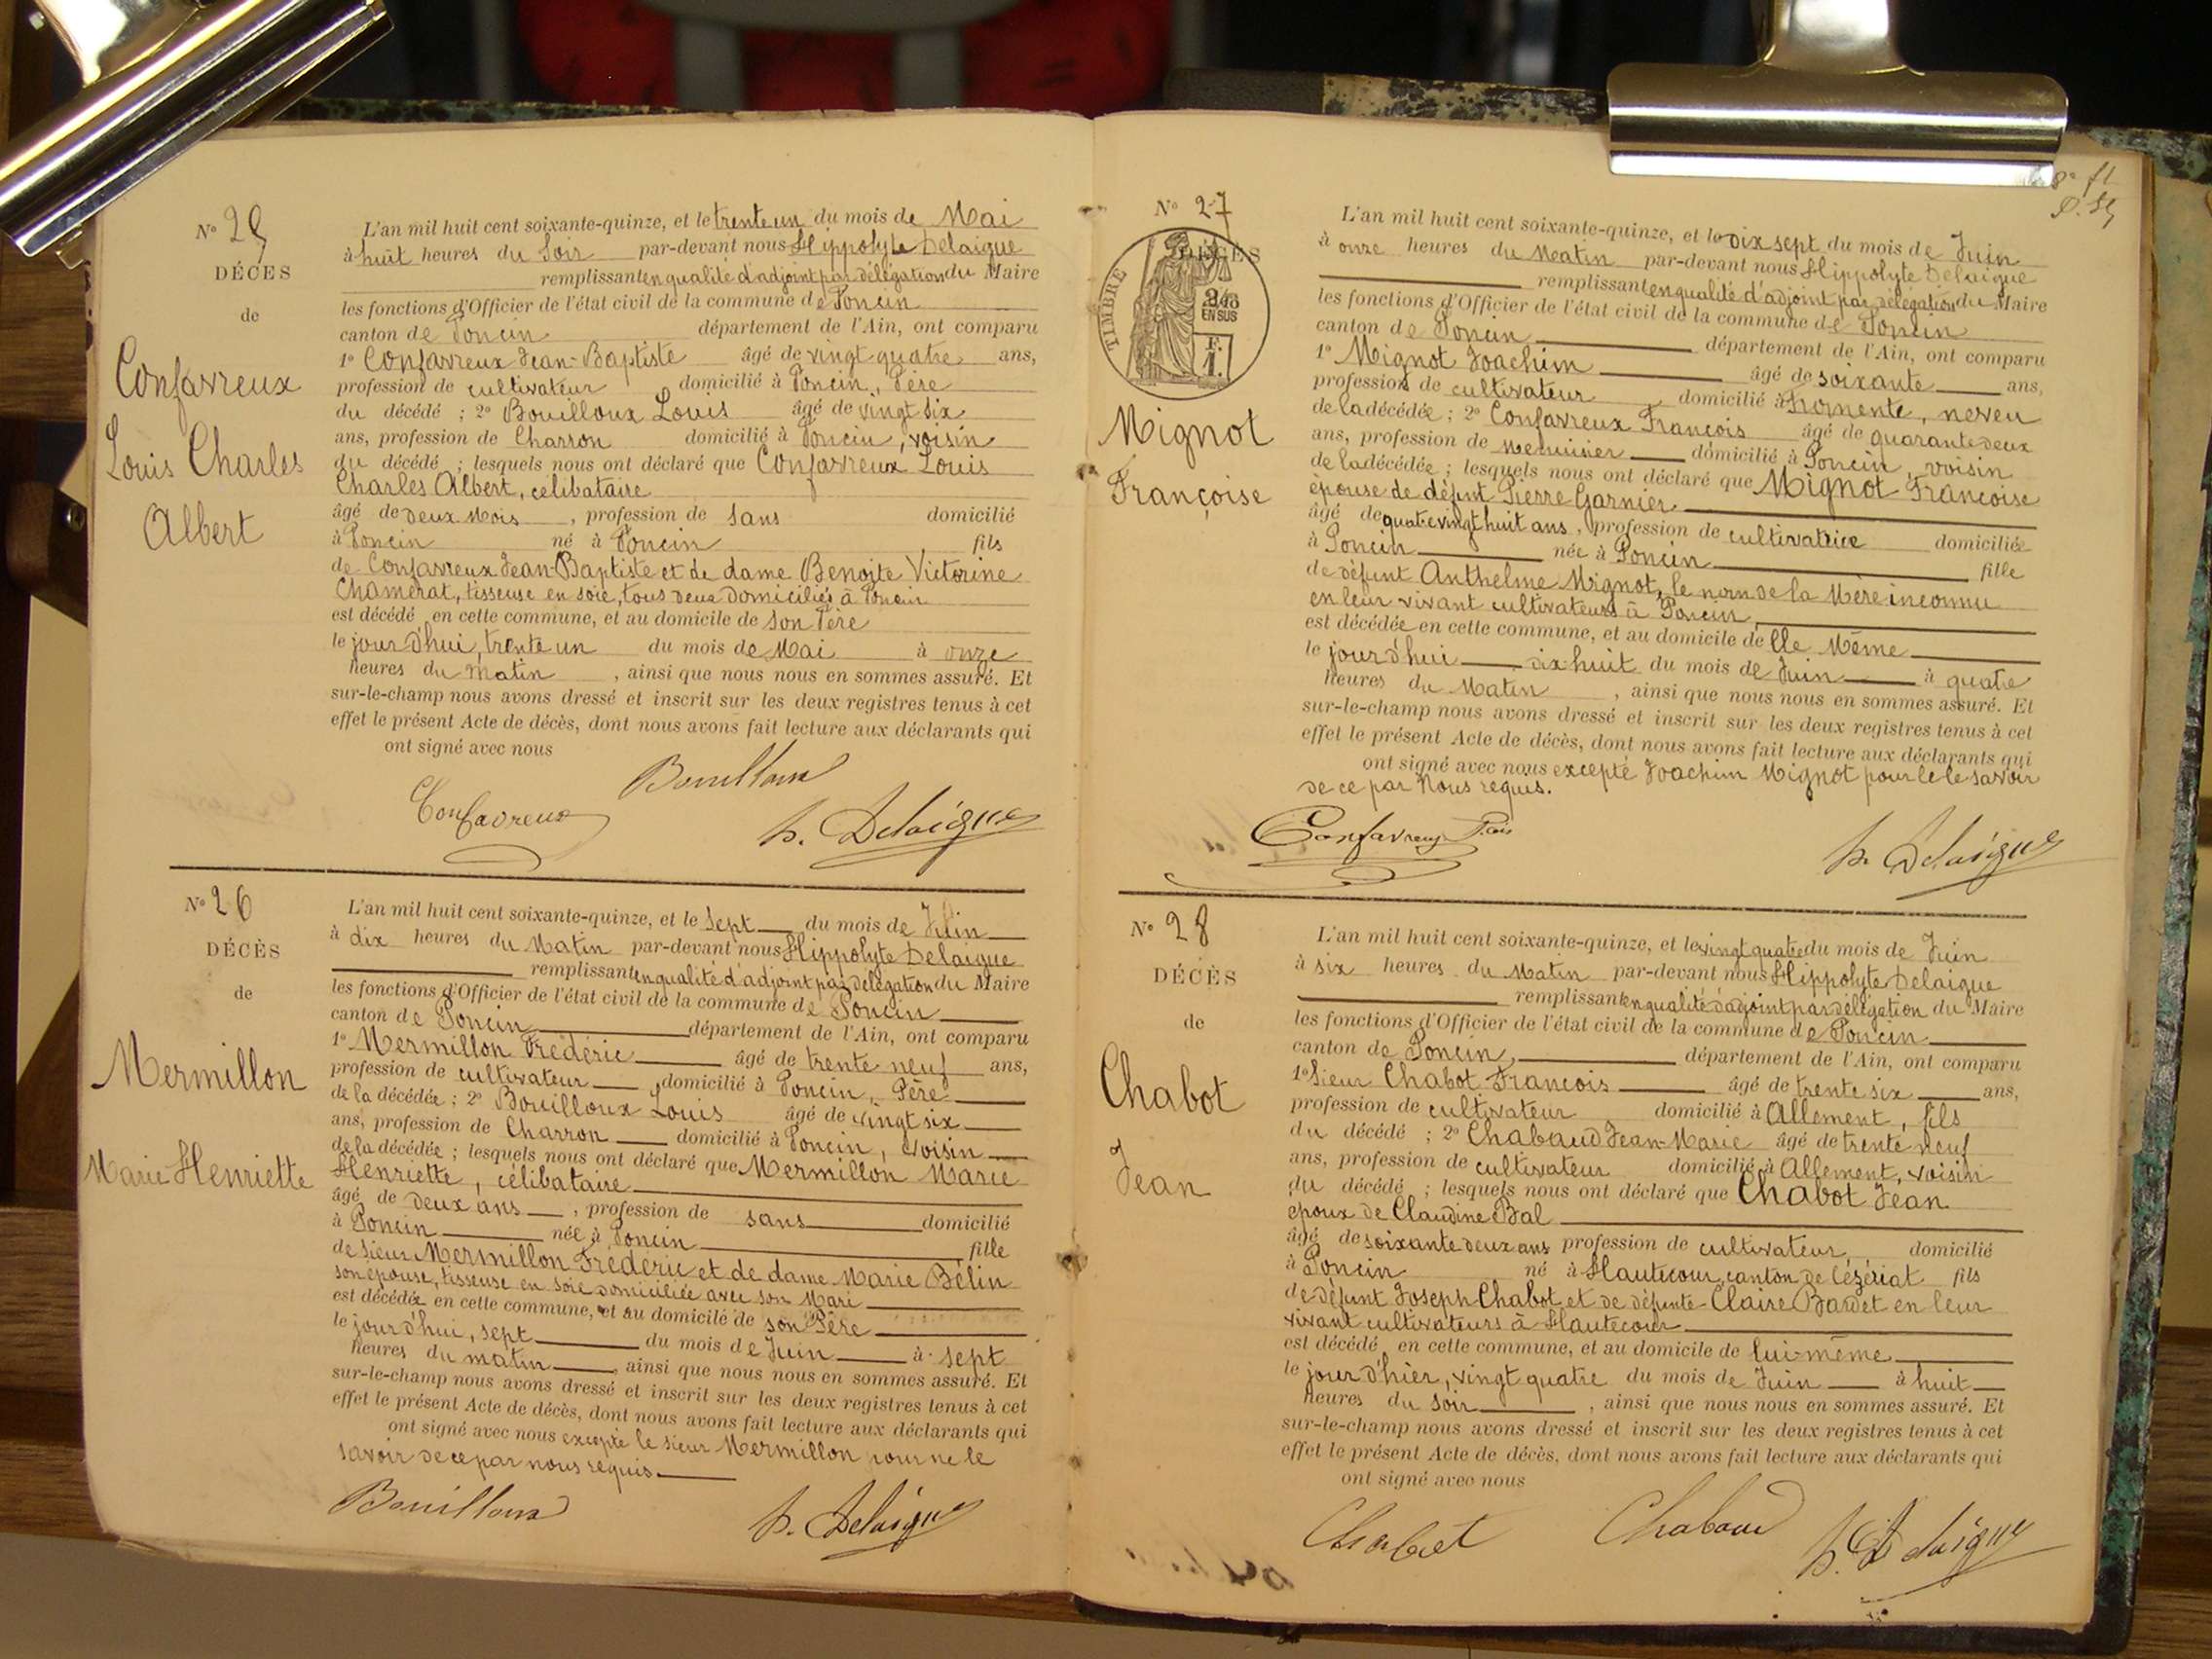 N° 25
DÉCÈS
de
Confavreux
Louis Charles
Albert
L'an mil huit cent soixante-quinze, et le trente un du mois de Mai
à huit heures du Soir par-devant nous Hippolyte Delaigue
remplissant en qualité d'adjoint par délégation du Maire
les fonctions d'Officier de l'état civil de la commune de Poncin
canton de Poncin département de l'Ain, ont comparu
1° Confavreux Jean-Baptiste âgé de vingt quatre ans,
profession de cultivateur domicilié à Poncin, Père
du décédé ; 2° Bouilloux Louis âgé de vingt six
ans, profession de Charron domicilié à Poncin, voisin
du décédé ; lesquels nous ont déclaré que Confavreux Louis
Charles Albert, célibataire
âgé de deux Mois , profession de sans domicilié
à Poncin né à Poncin fils
de Confavreux Jean-Baptiste et de dame Benoite Victorine
Chamerat, tisseuse en soie, tous deux domiciliés à Poncin
est décédé en cette commune, et au domicile de son Père
le jour d'hui, trente un du mois de Mai à onze
heures du matin , ainsi que nous nous en sommes assuré. Et
sur-le-champ nous avons dressé et inscrit sur les deux registres tenus à cet
effet le présent Acte de décès, dont nous avons fait lecture aux déclarants qui
ont signé avec nous
Bouilloux
Confavreux
h. Delaigue
N° 26
DÉCÈS
de
Mermillon
Marie Henriette
L'an mil huit cent soixante-quinze, et le Sept du mois de Juin
à dix heures du Matin par-devant nous Hippolyte Delaigue
remplissant en qualité d'adjoint par délégation du Maire
les fonctions d'Officier de l'état civil de la commune de Poncin
canton de Poncin département de l'Ain, ont comparu
1° Mermillon Frédéric âgé de trente neuf ans,
profession de cultivateur , domicilié à Poncin, Père
de la décédée ; 2° Bouilloux Louis âgé de vingt six
ans, profession de Charron domicilié à Poncin, voisin
de la décédée ; lesquels nous ont déclaré que Mermillon Marie
Henriette, célibataire
âgé de deux ans , profession de sans domicilié
à Poncin née à Poncin fille
de sieur Mermillon Frédéric et de dame Marie Bélin
son épouse, tisseuse en soie domiciliée avec son Mari
est décédée en cette commune, et au domicile de son Père
le jour d'hui, sept du mois de Juin à sept
heures du matin , ainsi que nous nous en sommes assuré. Et
sur-le-champ nous avons dressé et inscrit sur les deux registres tenus à cet
effet le présent Acte de décès, dont nous avons fait lecture aux déclarants qui
ont signé avec nous excepté le sieur Mermillon pour ne le
savoir de ce par nous requis.
Bouilloux
h. Delaigue
N° 27
DÉCÈS
TIMBRE
2/10
EN SUS
F.
1.
Mignot
Françoise
L'an mil huit cent soixante-quinze, et le dix sept du mois de Juin
à onze heures du Matin par-devant nous Hippolyte Delaigue
remplissant en qualité d'adjoint par délégation du Maire
les fonctions d'Officier de l'état civil de la commune de Poncin
canton de Poncin département de l'Ain, ont comparu
1° Mignot Joachim âgé de soixante ans,
profession de cultivateur , domicilié à , neveu
de la décédée ; 2° Confavreux François âgé de quarante deux
ans, profession de menuisier domicilié à Poncin, voisin
de la décédée ; lesquels nous ont déclaré que Mignot Françoise
épouse de défunt Pierre Garnier
âgé de quatre vingt huit ans, profession de cultivatrice domiciliée
à Poncin née à Poncin fille
de défunt Anthelme Mignot, le nom de la Mère inconnu
en leur vivant cultivateurs à Poncin,
est décédée en cette commune, et au domicile de Elle Même
le jour d'hui dix huit du mois de Juin à quatre
heures du Matin , ainsi que nous nous en sommes assuré. Et
sur-le-champ nous avons dressé et inscrit sur les deux registres tenus à cet
effet le présent Acte de décès, dont nous avons fait lecture aux déclarants qui
ont signé avec nous excepté Joachim Mignot pour le le savoir
de ce par Nous requis.
Confavreux F.ois
h. Delaigue
N° 28
DÉCÈS
de
Chabot
Jean
L'an mil huit cent soixante-quinze, et le vingt quatre du mois de Juin
à six heures du Matin par-devant nous Hippolyte Delaigue
remplissant en qualité d'adjoint par délégation du Maire
les fonctions d'Officier de l'état civil de la commune de Poncin
canton de Poncin, département de l'Ain, ont comparu
1° Sieur Chabot François âgé de trente six ans,
profession de cultivateur domicilié à Allement, fils
du décédé ; 2° Chabaud Jean-Marie âgé de trente neuf
ans, profession de cultivateur domicilié à Allement, voisin
du décédé ; lesquels nous ont déclaré que Chabot Jean
époux de Claudine Bal
âgé de soixante deux ans profession de cultivateur, domicilié
à Poncin né à Hautecour, canton de Cézériat fils
de défunt Joseph Chabot et de défunte Claire Bardet en leur
vivant cultivateurs à Hautecour
est décédé en cette commune, et au domicile de lui-même
le jour d'hier, vingt quatre du mois de Juin à huit
heures du soir , ainsi que nous nous en sommes assuré. Et
sur-le-champ nous avons dressé et inscrit sur les deux registres tenus à cet
effet le présent Acte de décès, dont nous avons fait lecture aux déclarants qui
ont signé avec nous
Chabot
Chabaud
h. Delaigue